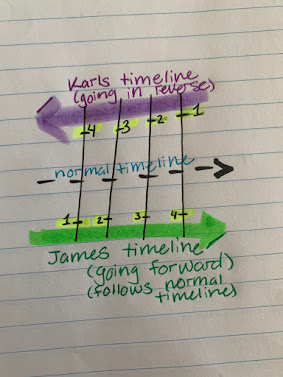 Karls timeline
(going in reverse)
4 3 2 1
normal timeline
1 2 3 4
James timeline
(going forward)
(follows normal
timeline)